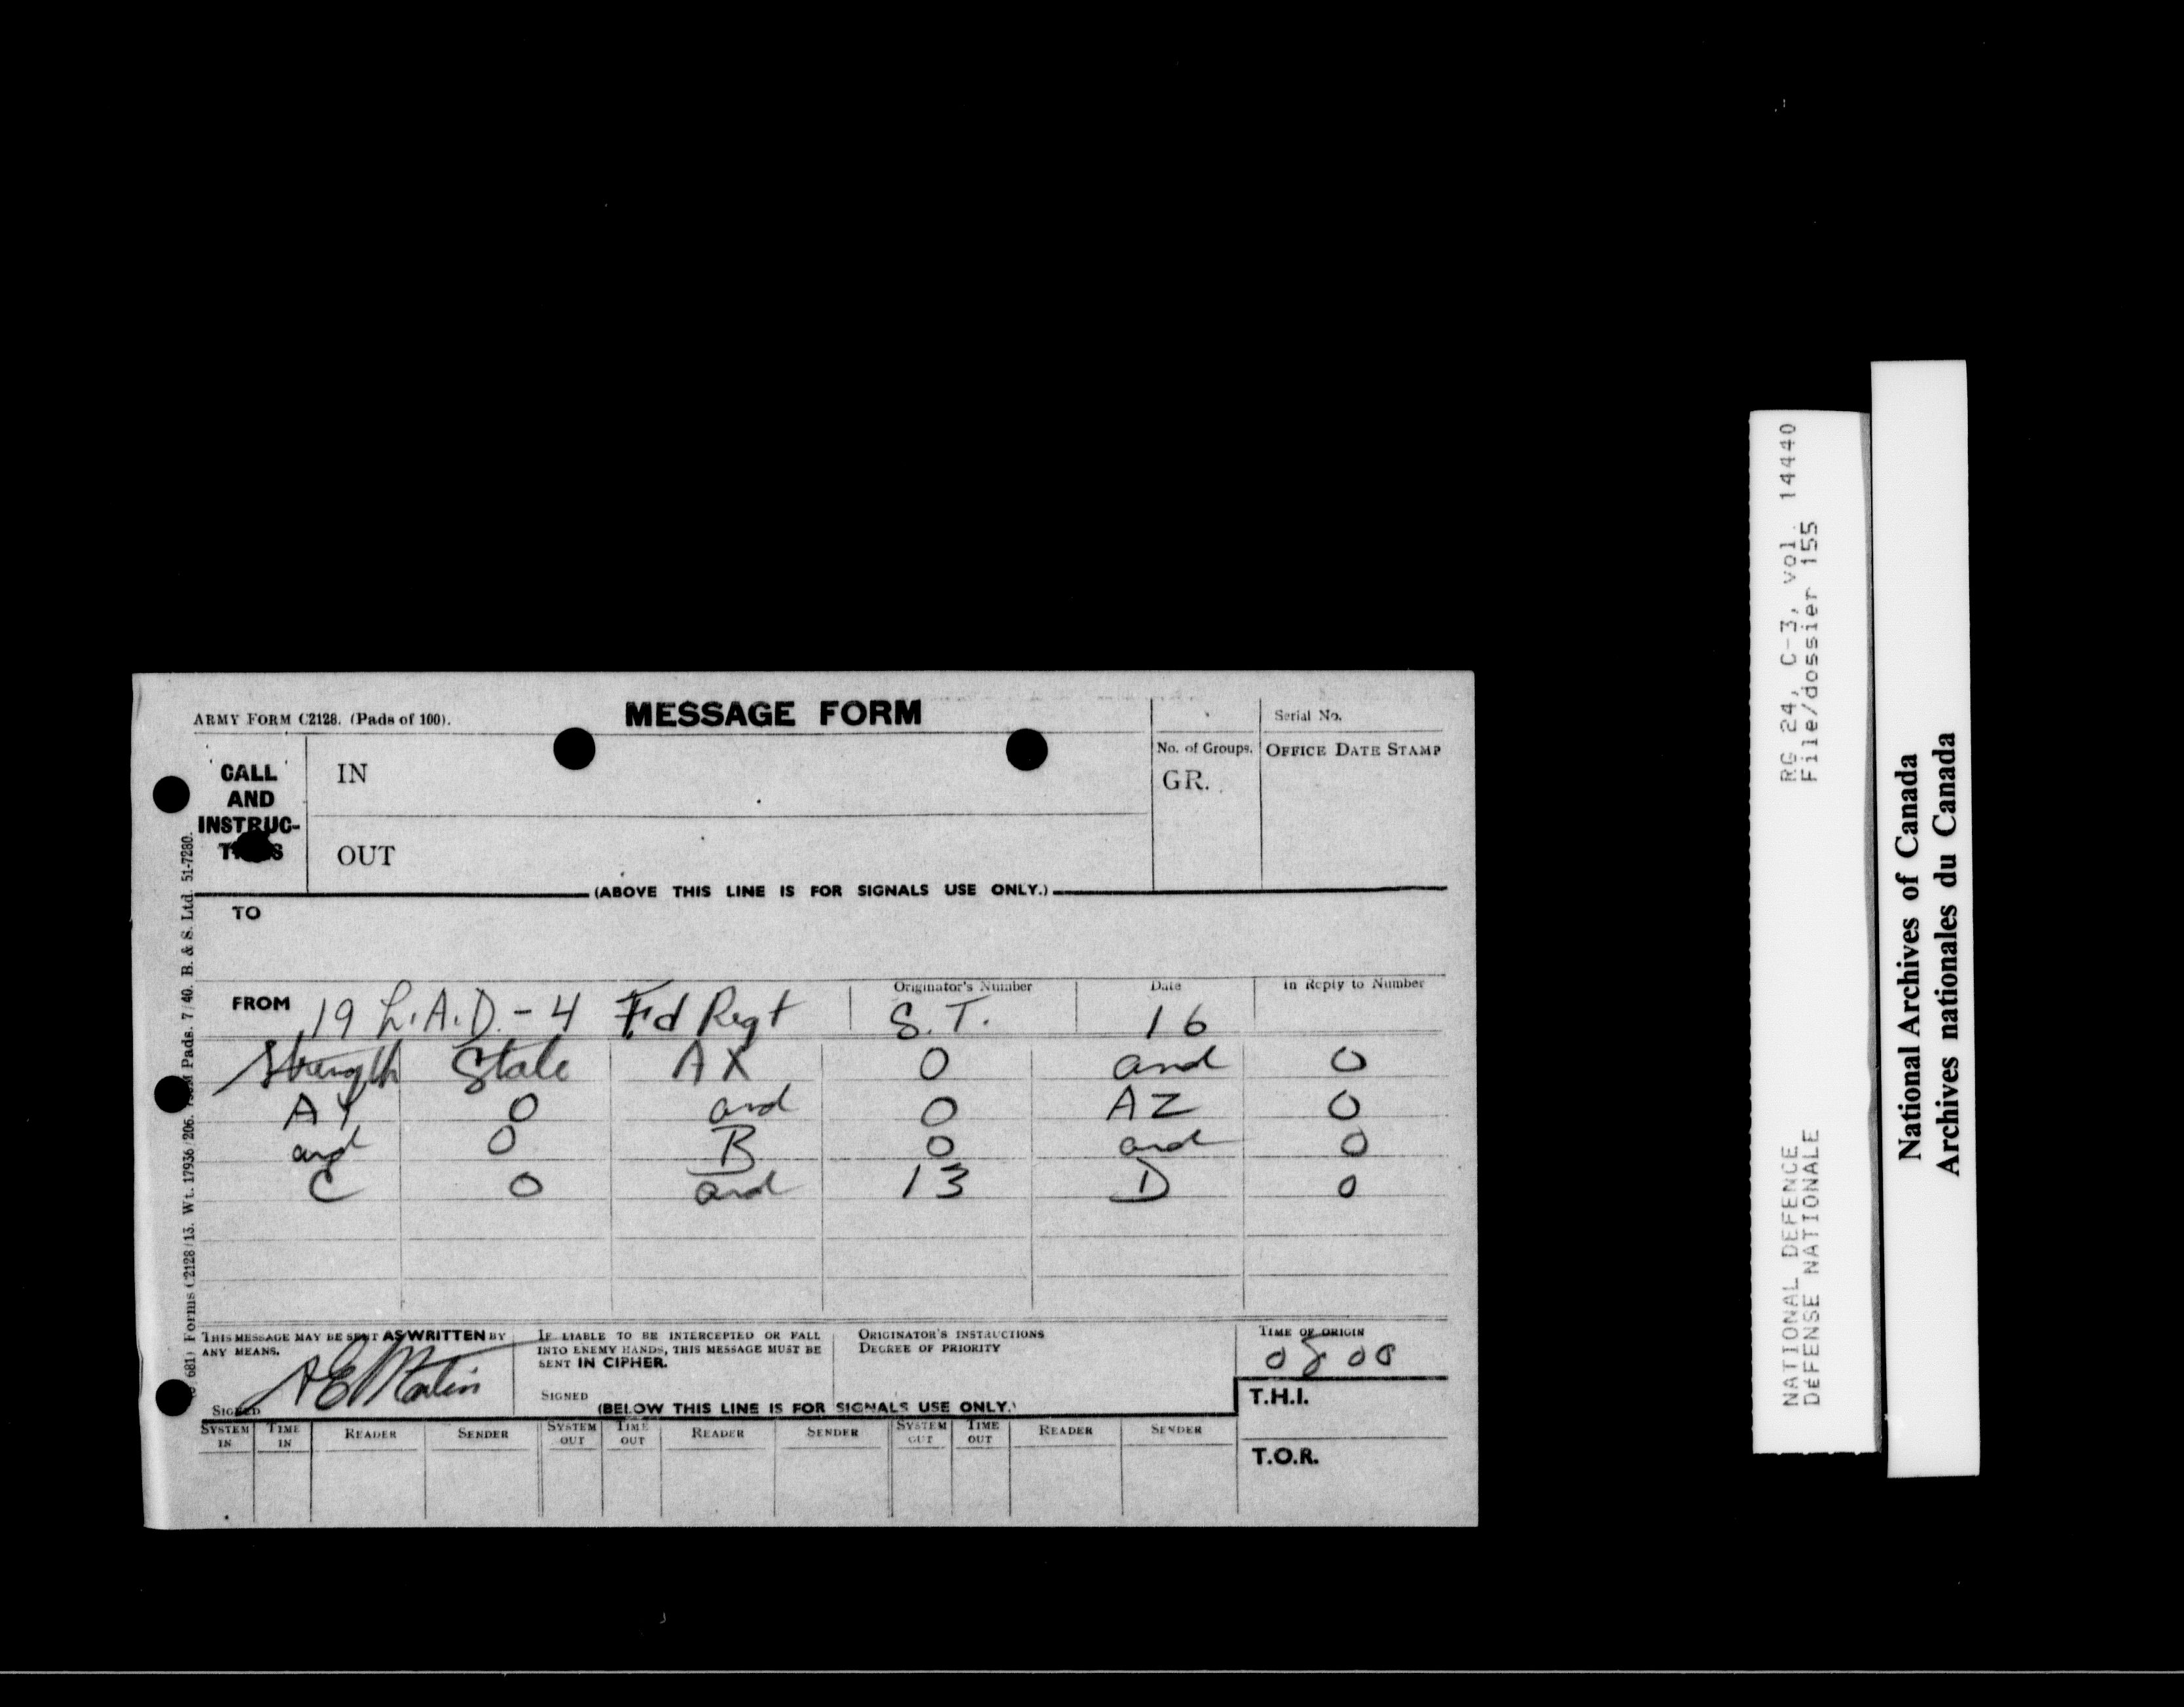 ARMY FORM C2128. (Pads of 100).
MESSAGE FORM
Serial No.
CALL AND INSTRUC-
IN
No. of Groups.
GR.
OFFICE DATE STAMP
OUT
(ABOVE THIS LINE IS FOR SIGNALS USE ONLY.)
TO
FROM 19 L.A.D. - 4 Fd Regt
Originator's Number
S.T.
Date
16
In Reply to Number
Strength State AX 0 and 0
AY 0 and 0 AZ 0
and 0 B 0 and 0
C 0 and 13 D 0
THIS MESSAGE MAY BE SENT AS WRITTEN BY
ANY MEANS.
A E Martin
SIGNED
IF LIABLE TO BE INTERCEPTED OR FALL
INTO ENEMY HANDS, THIS MESSAGE MUST BE
SENT IN CIPHER.
SIGNED
ORIGINATOR'S INSTRUCTIONS
DEGREE OF PRIORITY
TIME OF ORIGIN
0800
(BELOW THIS LINE IS FOR SIGNALS USE ONLY.)
T.H.I.
SYSTEM IN TIME IN READER SENDER SYSTEM OUT TIME OUT READER SENDER SYSTEM OUT TIME OUT READER SENDER
T.O.R.
681) Forms C2128/13. Wt. 17936/206. Pads. 7/40. B. & S. Ltd. 51-7280.
NATIONAL DEFENCE RG 24, C-3, vol. 14440
DÉFENSE NATIONALE File/dossier 155
National Archives of Canada
Archives nationales du Canada